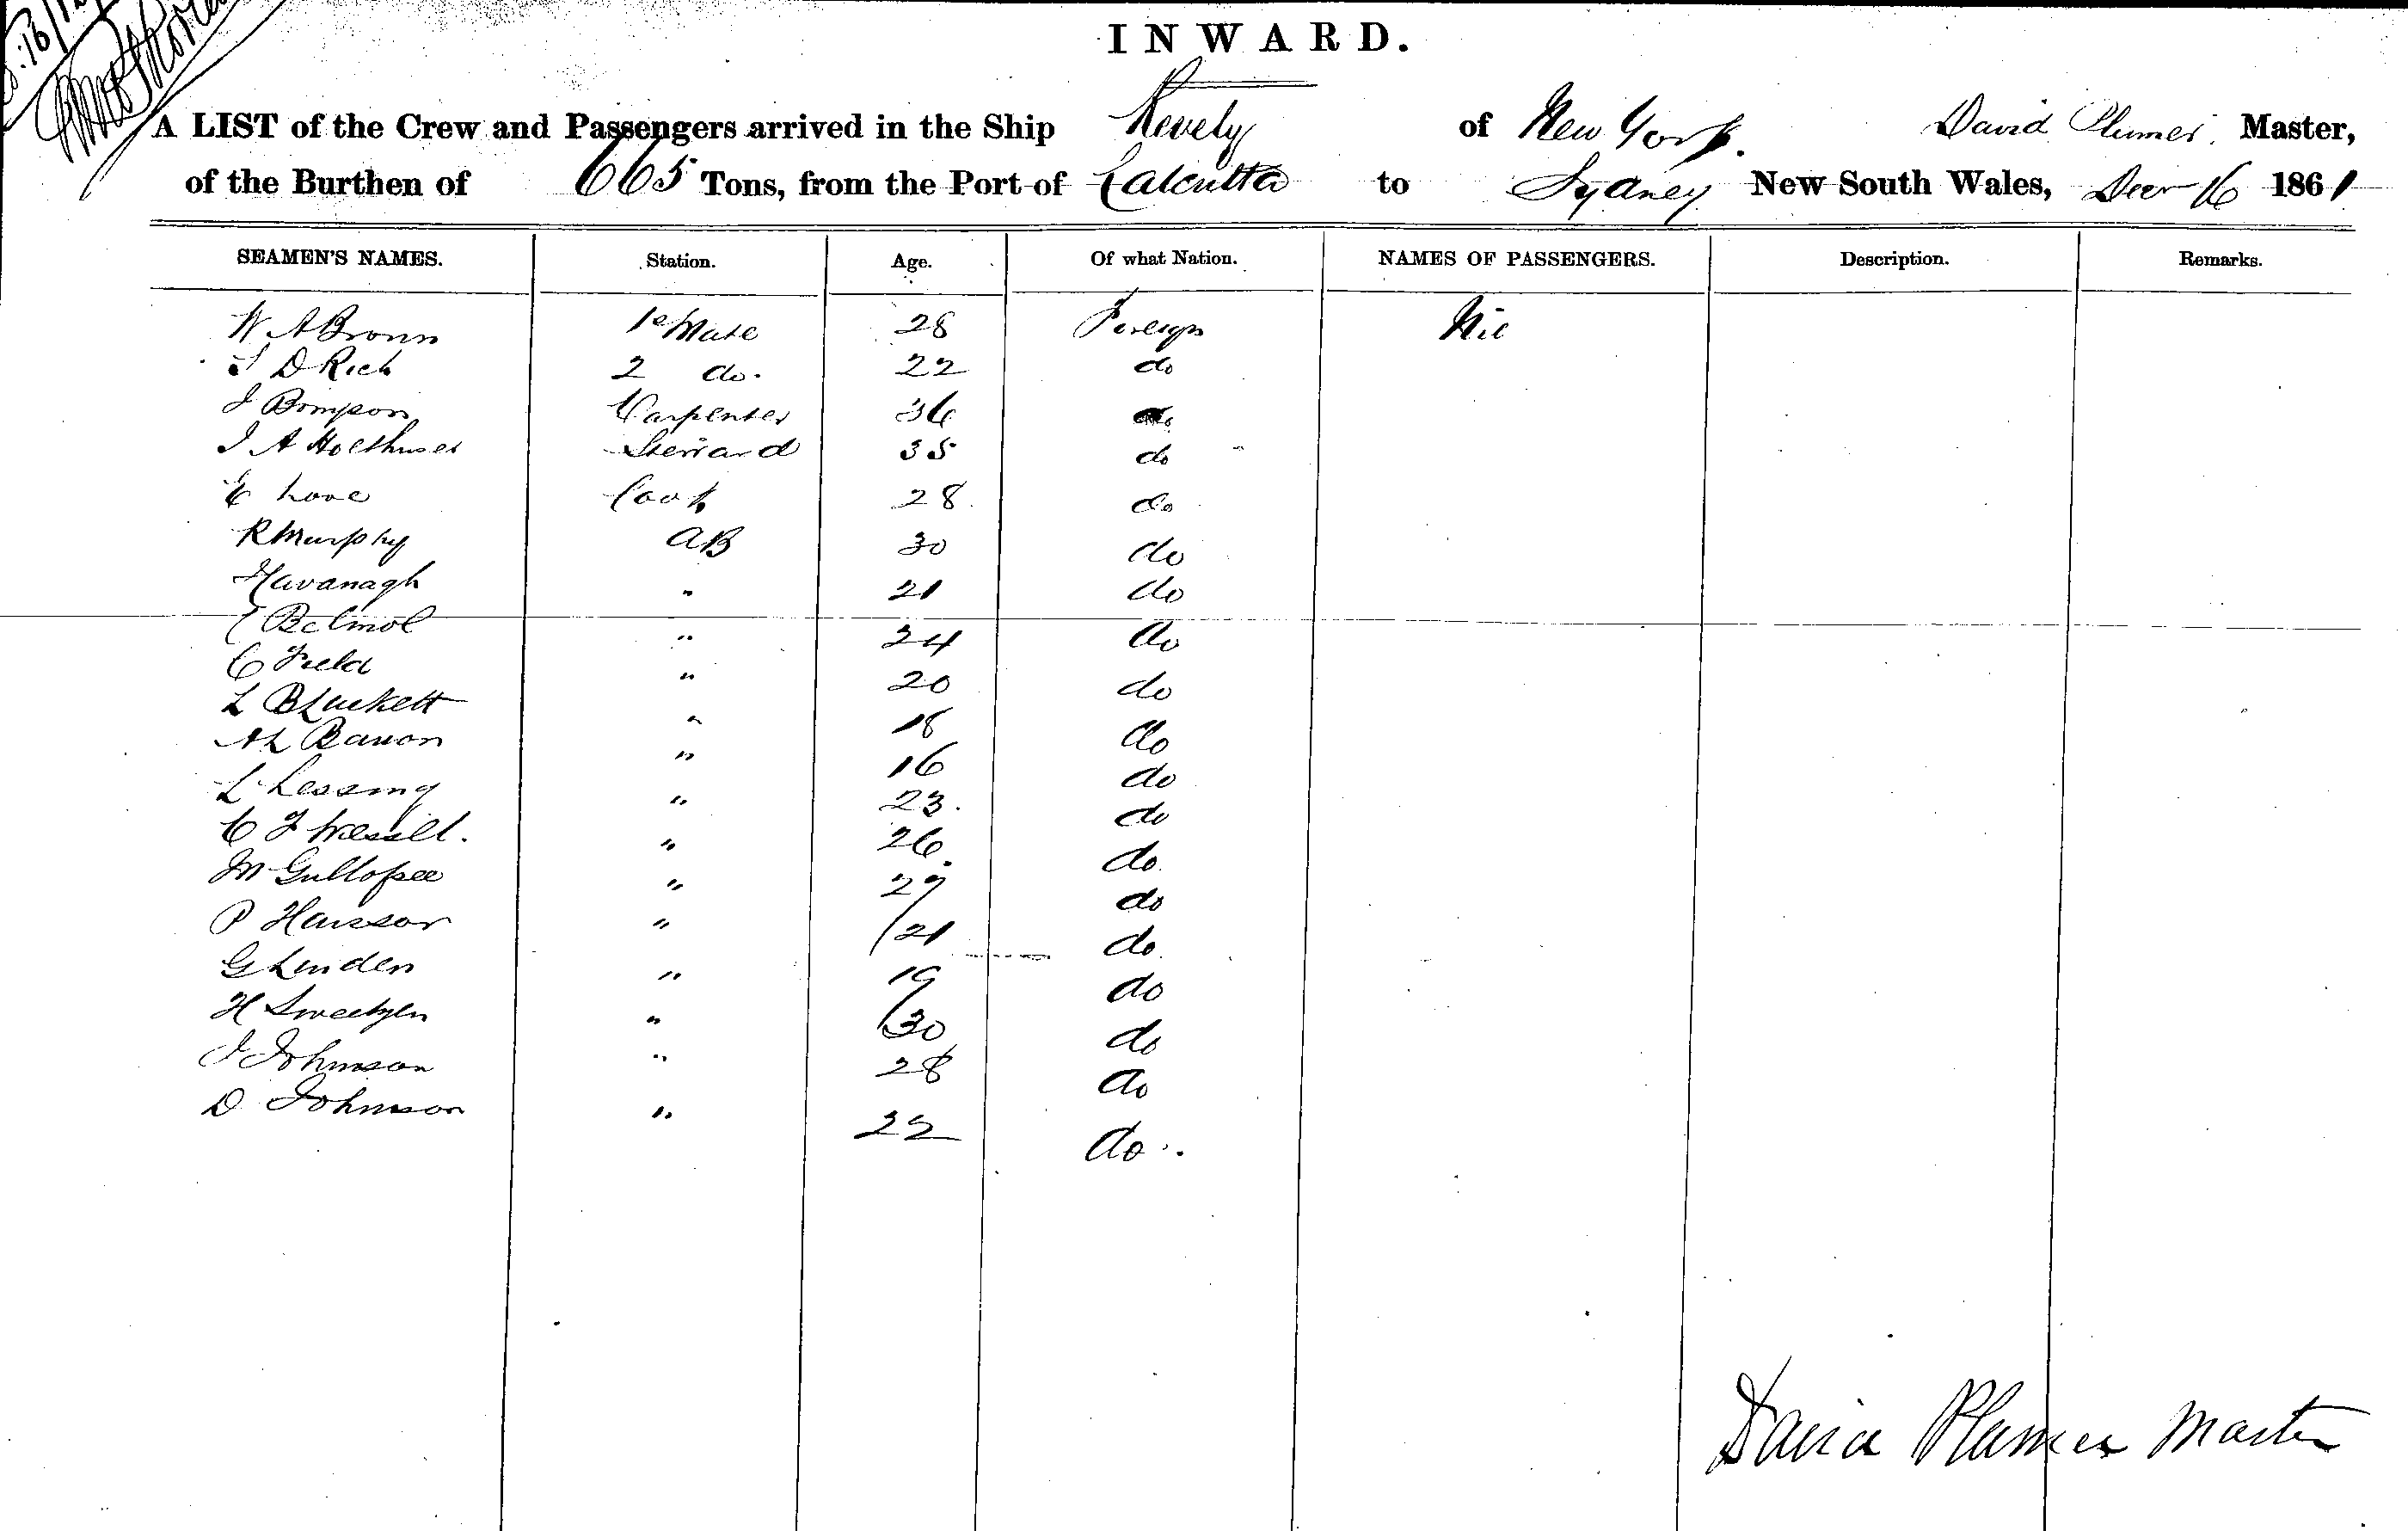 INWARD.
A LIST of the Crew and Passengers arrived in the Ship Revely of New York. David Plumer. Master,
of the Burthen of 665 Tons, from the Port of Calcutta to Sydney New South Wales, Decr 16 1861
SEAMEN'S NAMES. Station. Age. Of what Nation. NAMES OF PASSENGERS. Description. Remarks.
W A Brown 1e Mate 28 Foreign Nil
J D Rich 2 do. 22 do
J Bompson Carpenter 36 do
J A Holthuser Steward 35 do
E Love Cook 28 do
R Murphy AB 30 do
Kavanagh " 21 do
Belmol " 24 do
C Field " 20 do
L B Luckett " 18 do
A L Barron " 16 do
L Lessing " 23. do
C F Wessell. " 26. do
M Gullopee " 27 do
P Hansson " 21 do
G Linden " 19 do
H Sweetzen " 30 do
J Johnson " 28 do
D Johnson " 22 do
David Plumer Master